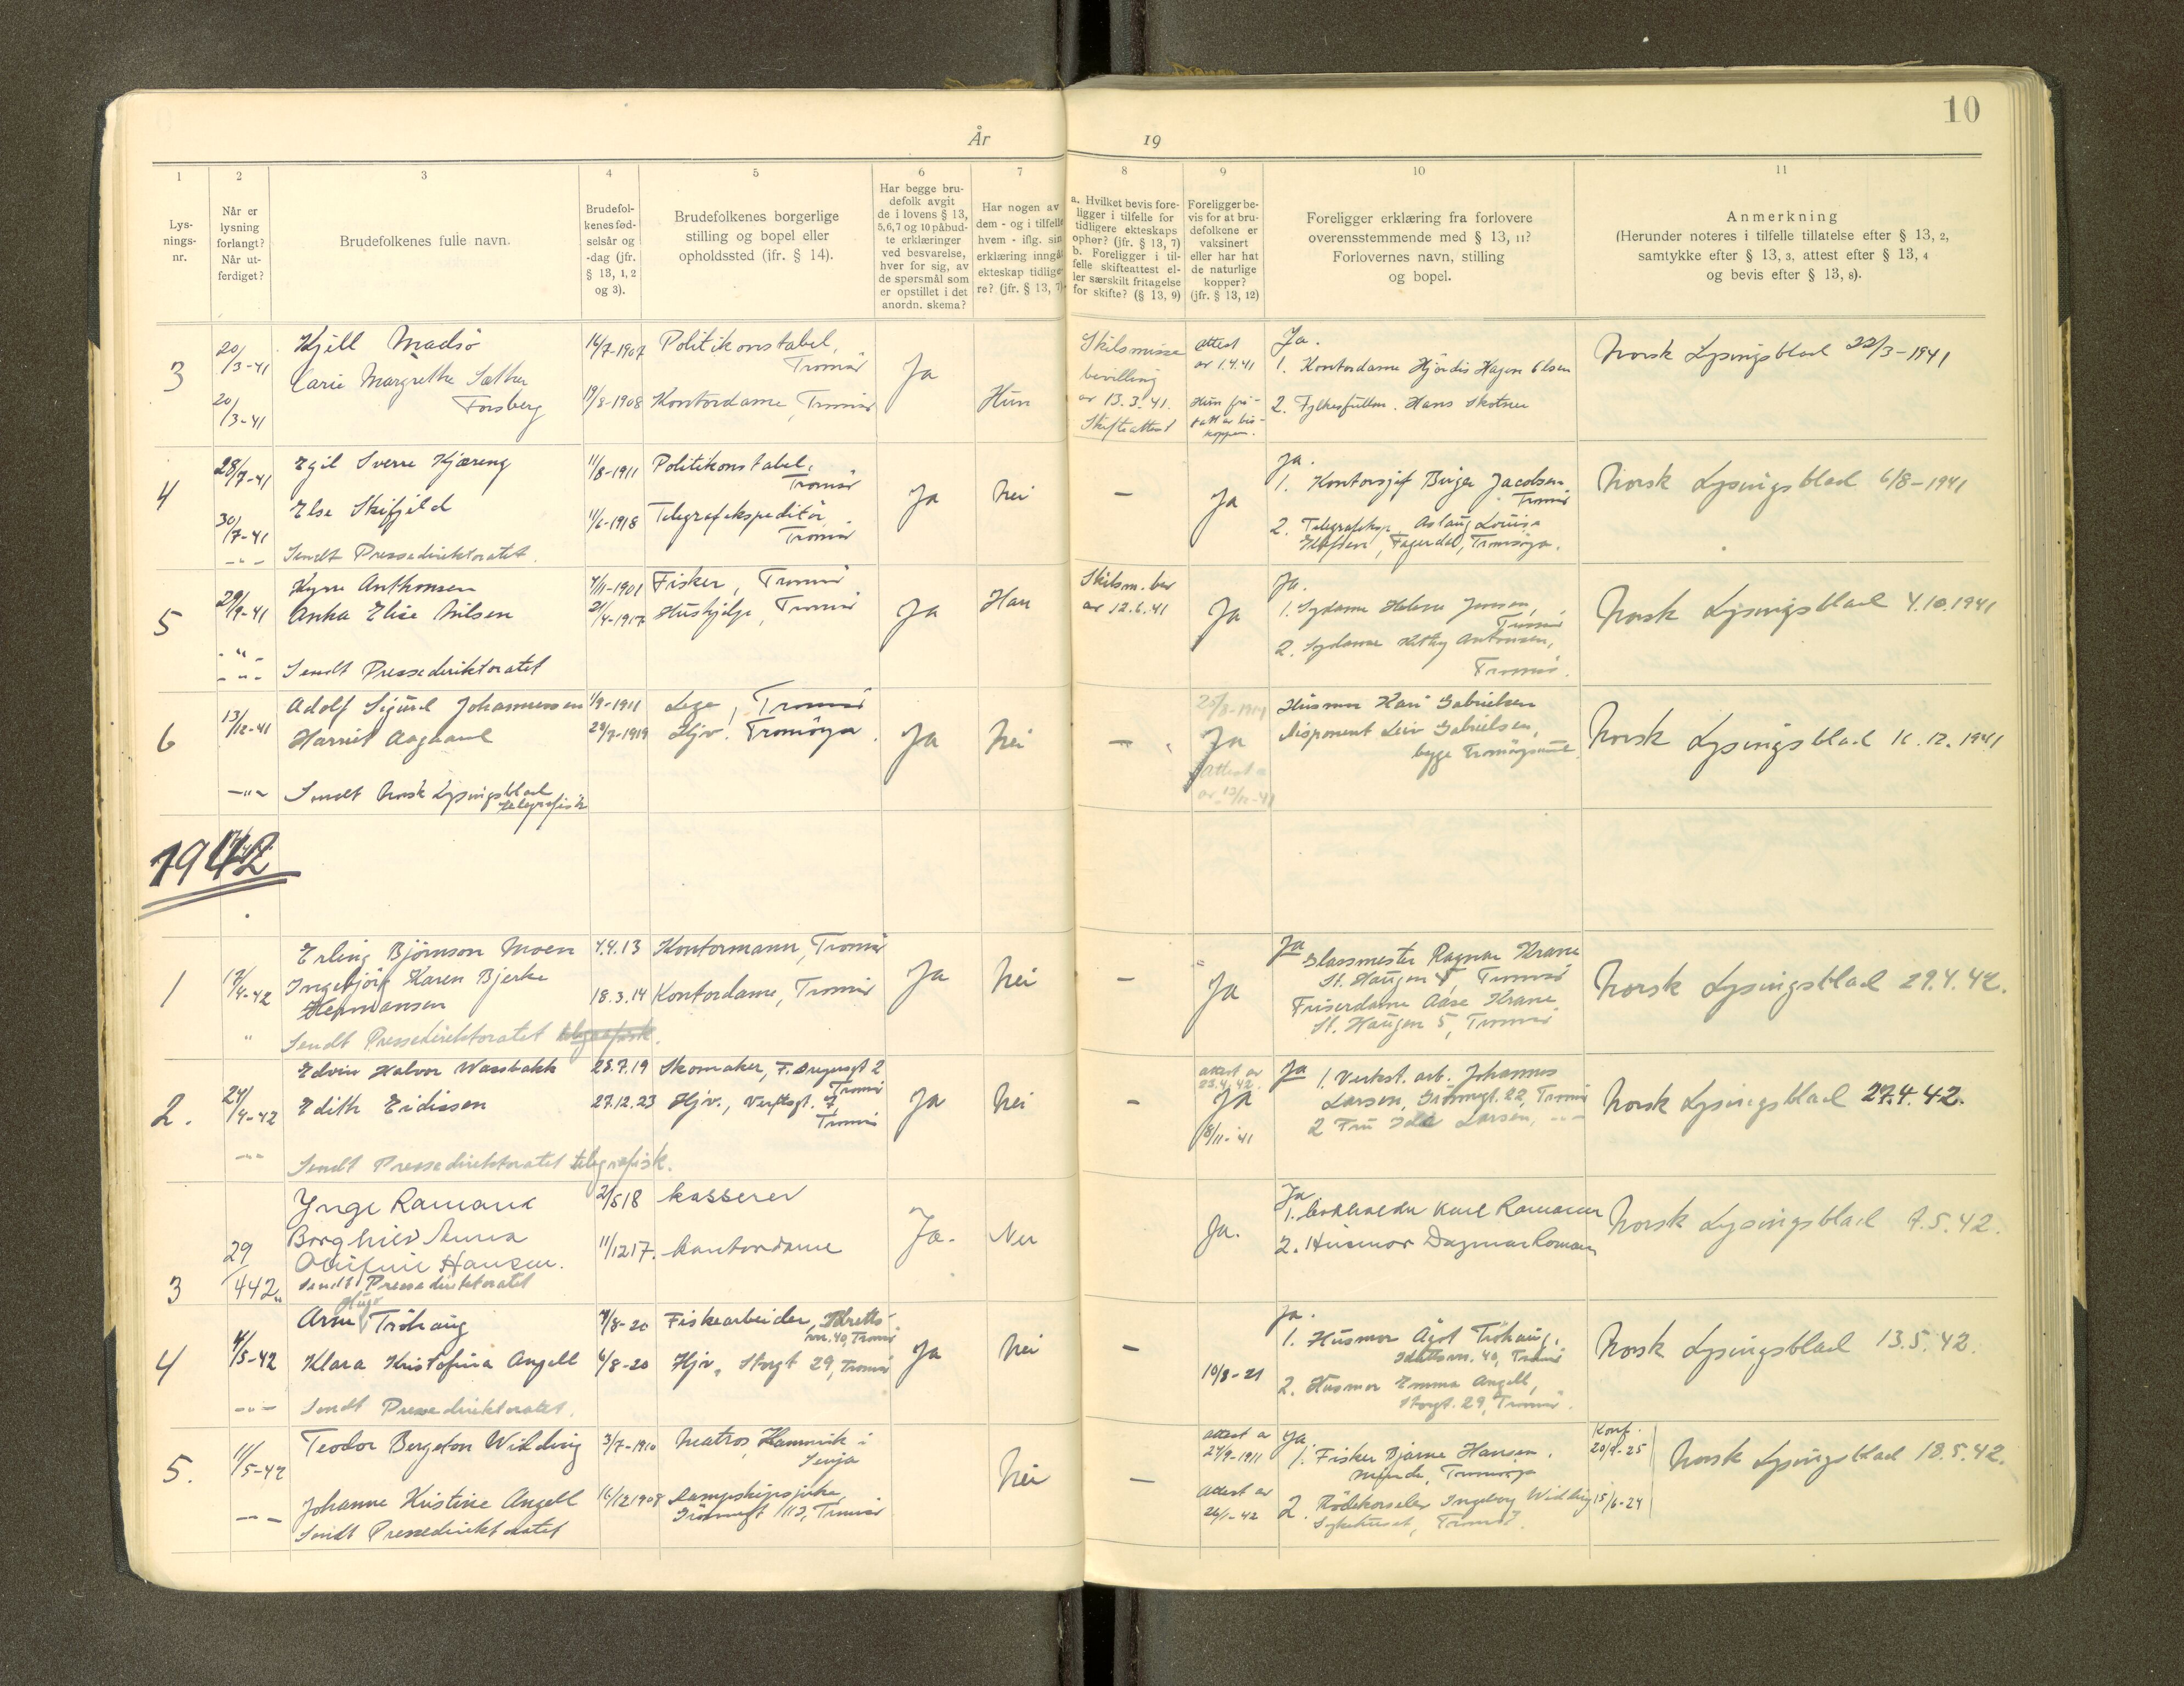 10
År
19
1
Lys-
nings-
nr.
2
Når er
lysning
forlangt?
Når ut-
ferdiget?
3
Brudefolkenes fulle navn.
4
Brudefol-
kenes fød-
selsår og
-dag (jfr.
§ 13, 1, 2
og 3).
5
Brudefolkenes borgerlige
stilling og bopel eller
opholdssted (ifr. § 14).
6
Har begge bru-
defolk avgit
de i lovens § 13,
5,6,7 og 10 påbud-
te erklæringer
ved besvarelse,
hver for sig, av
de spørsmål som
er opstillet i det
anordn. skema?
7
Har nogen av
dem - og i tilfelle
hvem - iflg. sin
erklæring inngått
ekteskap tidlige-
re? (jfr. § 13, 7)
8
a. Hvilket bevis fore-
ligger i tilfelle for
tidligere ekteskaps
ophør? (jfr. § 13, 7)
b. Foreligger i til-
felle skifteattest el-
ler særskilt fritagelse
for skifte? (§ 13, 9)
9
Foreligger be-
vis for at bru-
defolkene er
vaksinert
eller har hat
de naturlige
kopper?
(jfr. § 13, 12)
10
Foreligger erklæring fra forlovere
overensstemmende med § 13, 11?
Forlovernes navn, stilling
og bopel.
11
Anmerkning
(Herunder noteres i tilfelle tillatelse efter § 13, 2,
samtykke efter § 13, 3, attest efter § 13, 4
og bevis efter § 13, 8).
3
20/3-41
20/3-41
Kjell Madsö
Margrethe Sæther
Forsberg
14/7-1907
19/8-1908
Politikonstabel,
Tromsö
Kontordame, Tromsö
Ja
Hun
Skilsmisse
bevilling
av 13.3.41.
Skifteattest
Attest
av 1.4.41
Hun fri-
tatt av bis-
koppen.
Ja.
1. Kontordame Hjördis Hagen Olsen
2. Fylkesfullm. Hans Skotner
Norsk Lysingsblad 22/3-1941
4
28/7-41
30/7-41
-"-
Egil Sverre Kjæreng
Else Skifjeld
Sendt Pressedirektoratet.
11/8-1911
11/6-1918
Politikonstabel,
Tromsö
Telegrafekspeditör
Tromsö
Ja
Nei
-
Ja
Ja.
1. Kontorsjef Birger Jacobsen,
Tromsö
2. Telegrafeksp. Aslaug Louise
Fagerdal, Tromsöya.
Norsk Lysingsblad 6/8-1941
5
29/9-41
-"-
-"-
Anthonsen
Anka Elise Nilsen
Sendt Pressedirektoratet
4/11-1901
21/4-1917
Fisker, Tromsö
Hushjelp, Tromsö
Ja
Han
Skilsm. bev
av 12.6.41
Ja
Ja.
1. Sydame Helene Jensen,
Tromsö
2. Sydame Kitty Antonsen,
Tromsö.
Norsk Lysingsblad 4.10.1941
6
13/12-41
-"-
Adolf Sigurd Johannessen
Harriet Aagaard
Sendt Norsk Lysingsblad
telegrafisk
1/9-1911
29/7-1919
Lege, Tromsö
Hjv. Tromöya.
Ja
Nei
-
Ja
Attest
av 13/12-41
Husmor Kari Gabrielsen
Disponent Leiv Gabrielsen,
begge Tromöysund.
Norsk Lysingsblad 16.12.1941
1942
1
17/4-42
"
Erling Björnson Moen
Ingebjörg Karen Bjerke
Hermansen
Sendt Pressedirektoratet telegrafisk.
4.4.13
18.3.14
Kontormann, Tromsö
Kontordame, Tromsö
Ja
Nei
-
Ja
Ja
Glassmester Ragnar Krane
St. Haugen 5, Tromsö
Friserdame Aase Krane
St. Haugen 5, Tromsö
Norsk Lysingsblad 29.4.42.
2.
24/4-42
-"-
Edvin Halvor Wassbakk
Edith Eidissen
Sendt Pressedirektoratet telegrafisk.
28.7.19
27.12.23
Skomaker, F. Dreyersgt 2
Tromsö
Hjv., Verftsgt. 7,
Tromsö
Ja
Nei
-
attest av
23.4.42.
Ja
18/11-41
Ja
1. Verkst. arb. Johannes
Larsen, Grönnegt. 22, Tromsö
2 Fru Ida Larsen, -"-
Norsk Lysingsblad 27.4.42.
3
29/4 42
"
Ynge
Borghild Anna
Hansen.
Sendt Pressedirektoratet
2/5 18
11/12 17.
kasserer
kontordame
Ja.
Nei
Ja.
Ja
1. Karl
2. Husmor Dagmar
Norsk Lysingsblad 7.5.42.
4
4/5-42
-"-
Hugo
Arne Tröhaug
Klara Kristofina Angell
Sendt Pressedirektoratet.
4/8-20
6/8-20
Fiskearbeider, Idretts-
vn. 40, Tromsö
Hjv., Storgt 29, Tromsö
Ja
Nei
-
10/8-21
Ja.
1. Husmor Ågot Tröhaug,
Idrettsvn. 40, Tromsö
2. Husmor Emma Angell,
Storgt. 29, Tromsö.
Norsk Lysingsblad 13.5.42.
5.
11/5-42
-"-
Teodor Bergeton Wilding
Johanne Kristine Angell
Sendt Pressedirektoratet
3/7-1910
16/12 1908
Matros, Hamnvik i
Senja
Dampskipspike,
Grönnegt 113, Tromsö
Nei
-
attest av
27/9-1911
Attest av
26/1-42
Ja
1. Fisker Bjarne Hansen,
Minde, Tromsöya
2. Rödekorssöster Ingeborg Wilding
Sykehuset, Tromsö.
Konf.
20/9-25
15/6-24
Norsk Lysingsblad 18.5.42.